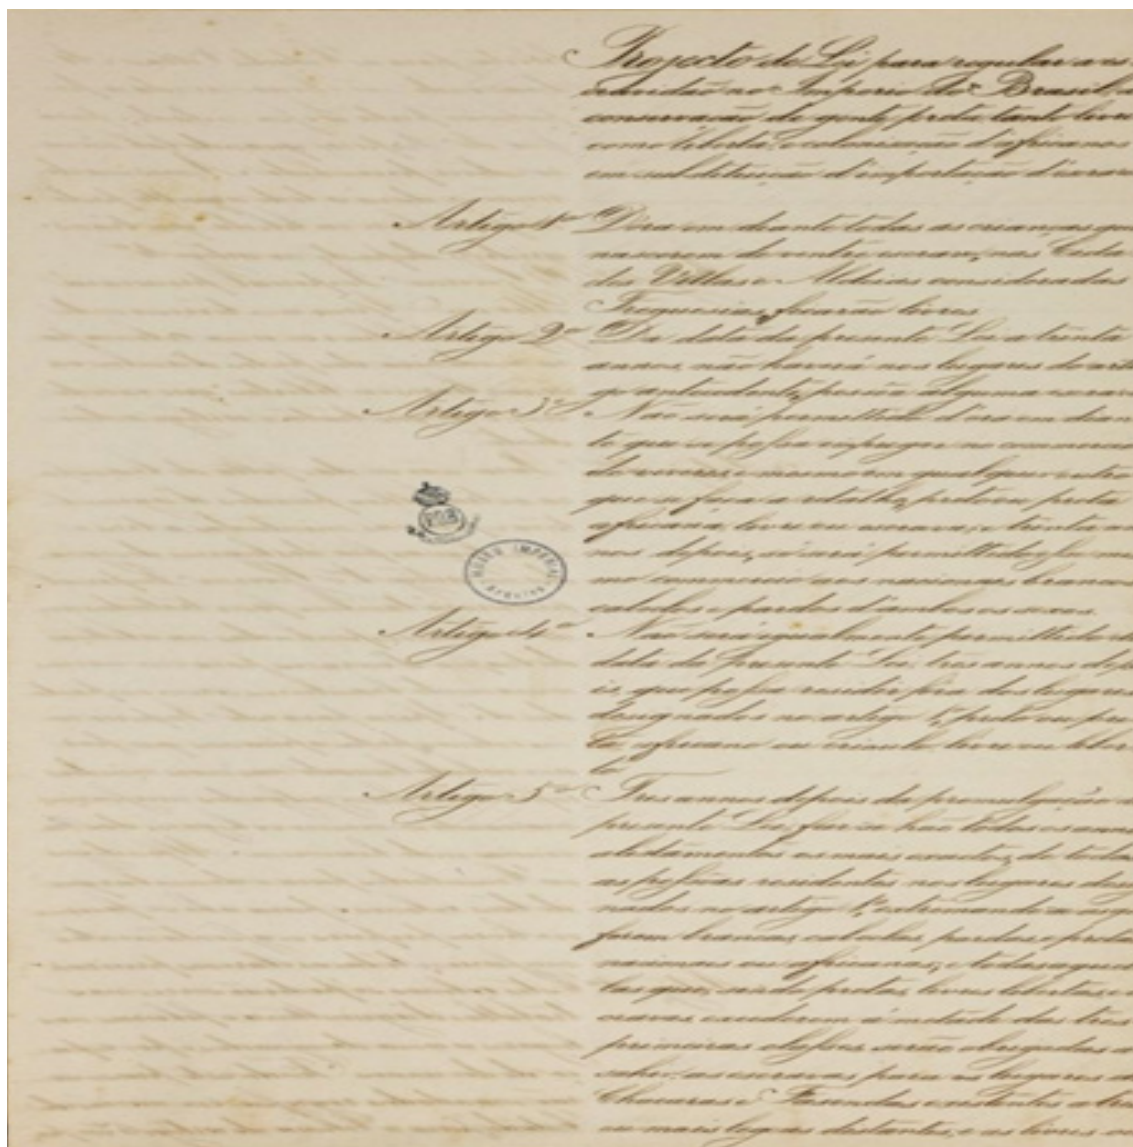 Projecto de Lei para regular a es
cravidão no Imperio do Brasil, a
conservação da gente preta, tanto livre
como liberta, e colonisação d'africanos
em substituição d'importação d'escravos
Artigo 1º D'ora em deante todas as crianças que
nascerem do ventre escravo, nas Cida
des Villas e Aldeias consideradas
Freguesias, ficarão livres
Artigo 2º Da data da presente Lei a trinta
annos, não haverá nos lugares do arti
go antecedente, pessôa alguma escrava
Artigo 3º Não será permittido d'ora em dian
te que se possa empregar no commercio
de viveres, e mesmo em qualquer outro
que se faça a retalho, preto ou preta
africana, livre ou escrava, e trinta an
nos depois, só será permittido o mes
mo commercio aos nacionaes brancos
cabolos e pardos d'ambos os sexos.
Artigo 4º Não será igualmente permittido da
data da presente Lei, tres annos depo
is, que possa residir fóra dos lugares
designados no artigo 1º, preto ou pre
ta, africano ou crioulo livre ou liber
to
Artigo 5º Tres annos depois da promulgação da
presente Lei, far-se hão todos os annos
alistamentos os mais exactos, de todas
as pessôas residentes nos lugares desig
nados no artigo 1º, extremando as que
forem brancas, cabolas, pardas, e pretas
nacionaes ou africanas; e todas aquel
las que, sendo pretas, livres libertas, e es
cravas, excederem á metade das tres
primeiras classes, serão obrigadas a
sahir, as escravas para os lugares de
Chacaras e Fazendas existentes a tres
ou mais legoas distantes, e as livres ou
P.O.B
MUSEU IMPERIAL
ARQUIVO